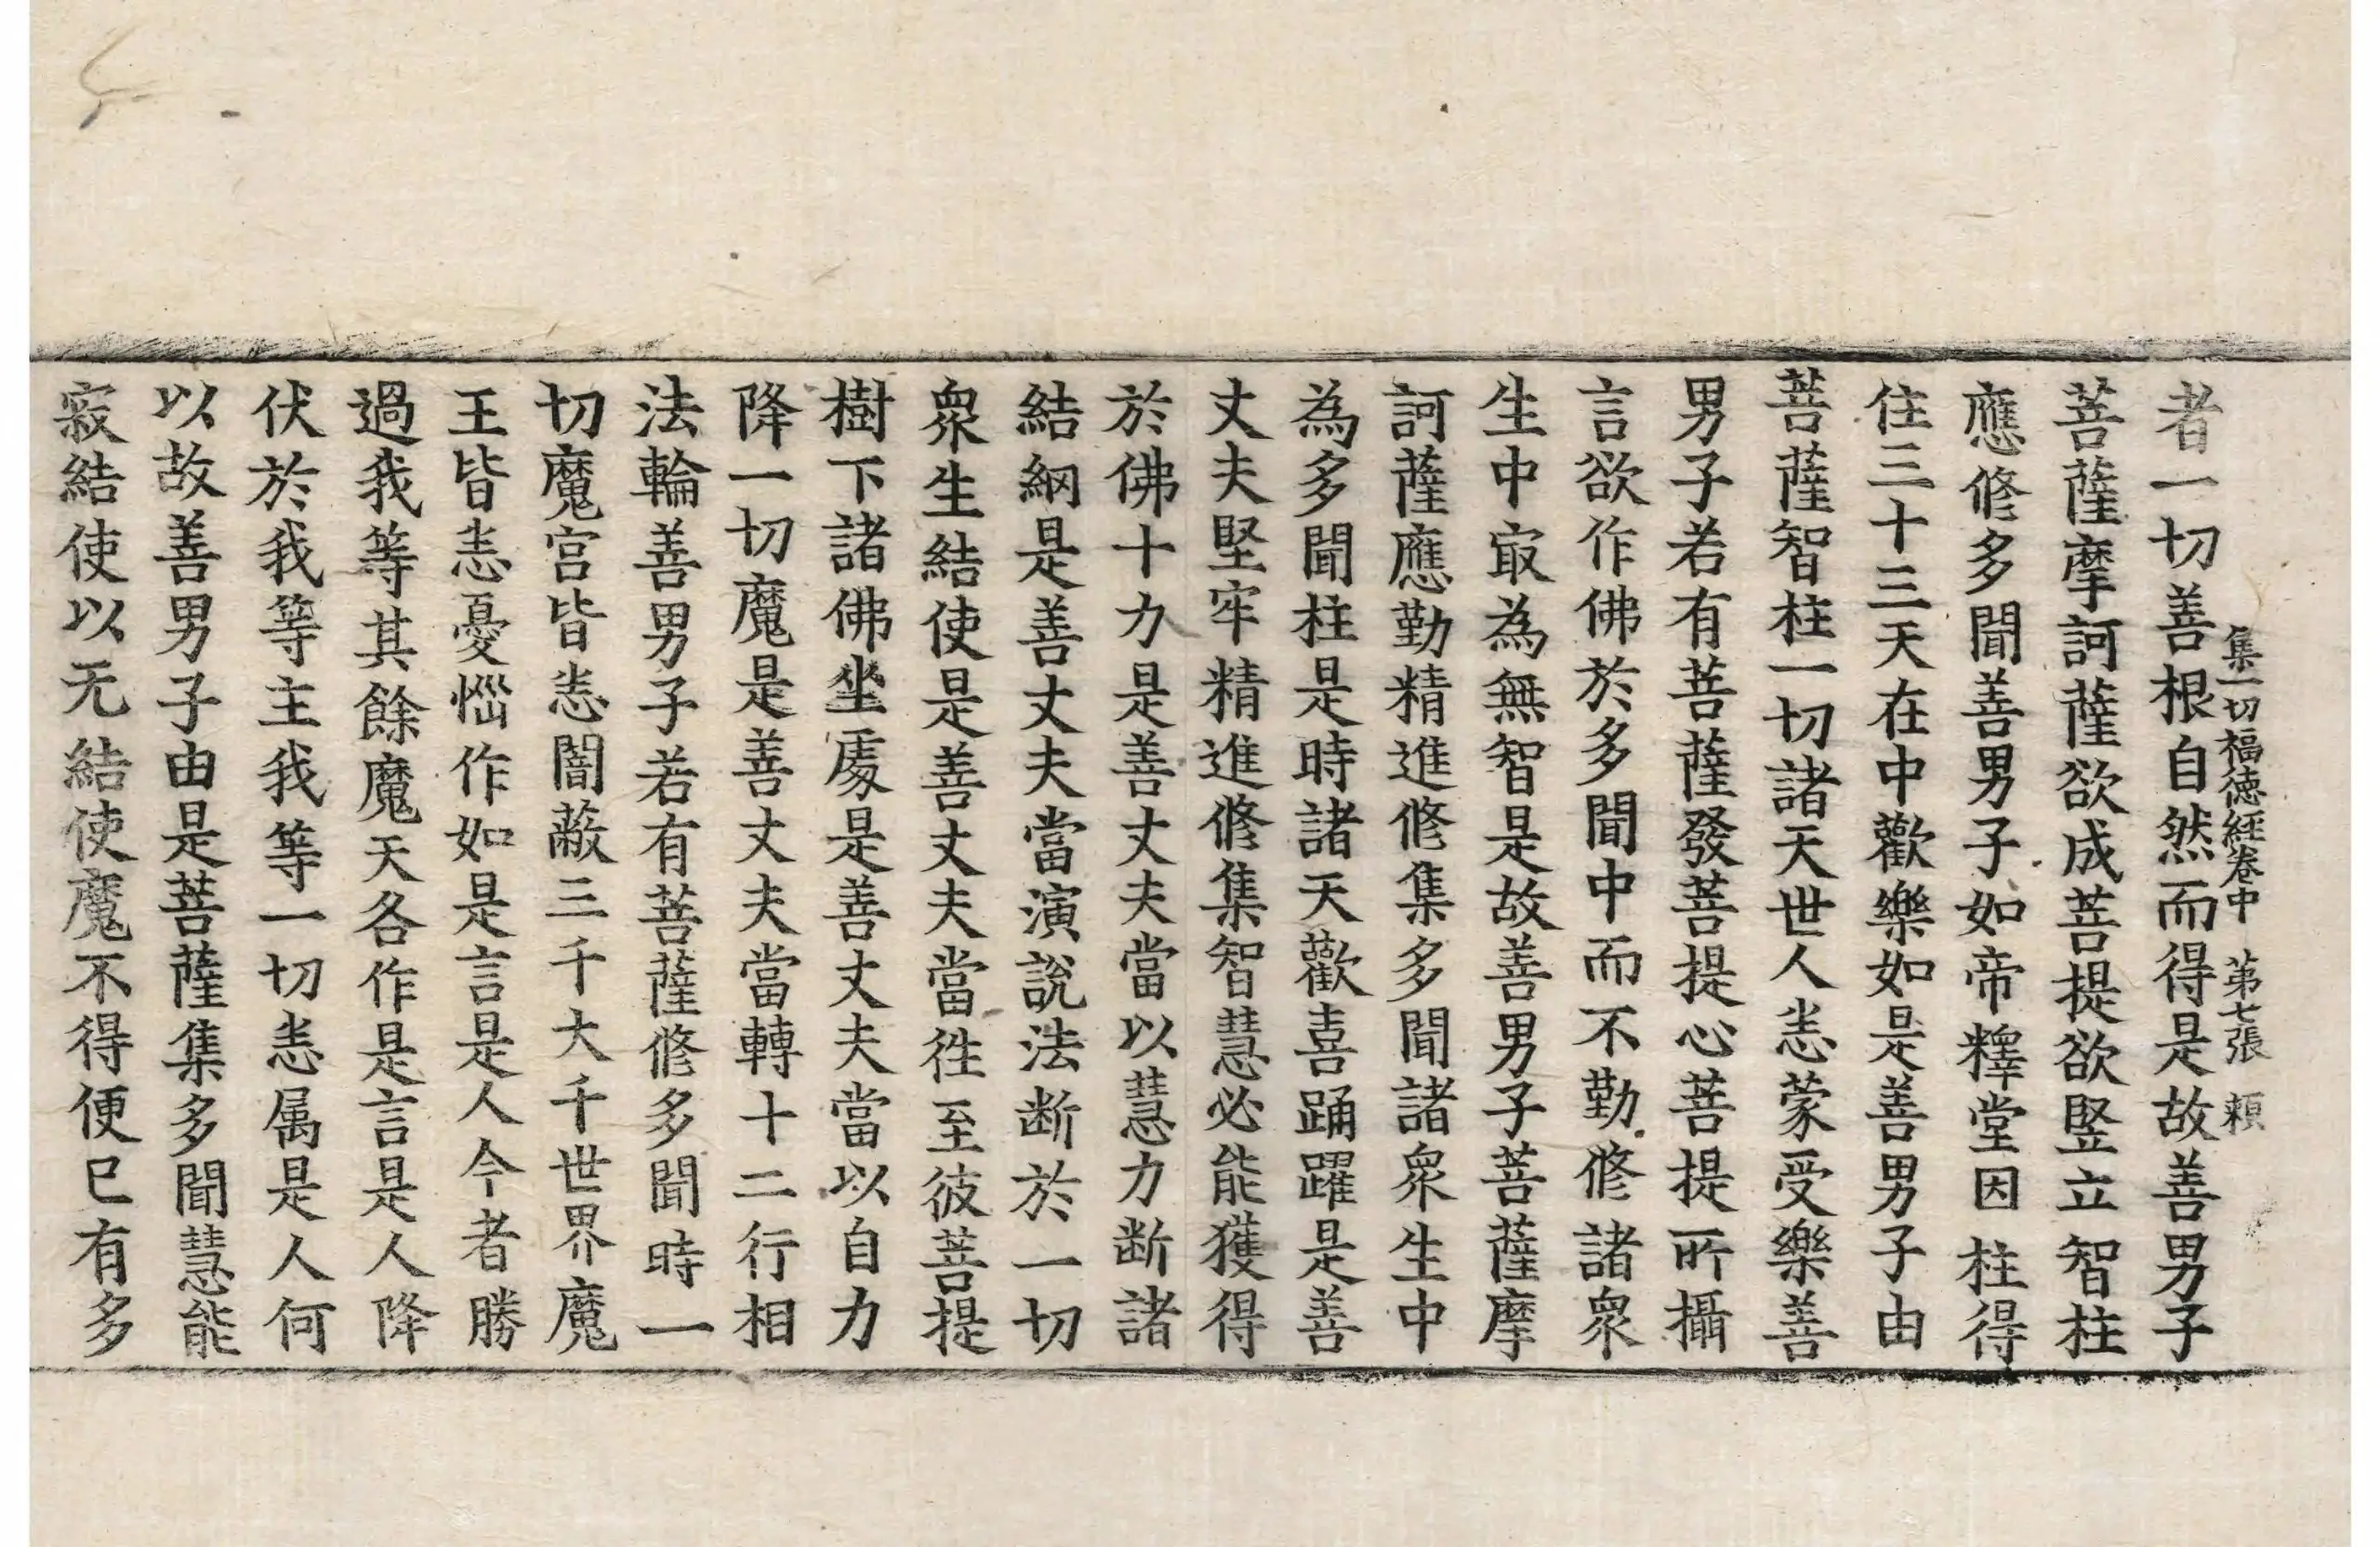 集一切福德經卷中　第七張　頼
者一切善根自然而得是故善男子
菩薩摩訶薩欲成菩提欲竪立智柱
應修多聞善男子如帝釋堂因柱得
住三十三天在中歡樂如是善男子由
菩薩智柱一切諸天世人恙蒙受樂善
男子若有菩薩發菩提心菩提所攝
言欲作佛於多聞中而不勤修諸衆
生中㝡為無智是故善男子菩薩摩
訶薩應勤精進修集多聞諸衆生中
為多聞柱是時諸天歡喜踊躍是善
丈夫堅牢精進修集智慧必能獲得
於佛十力是善丈夫當以慧力断諸
結網是善丈夫當演說法断於一切
衆生結使是善丈夫當徃至彼菩提
樹下諸佛坐處是善丈夫當以自力
降一切魔是善丈夫當轉十二行相
法輪善男子若有菩薩修多聞時一
切魔宮皆恙闇蔽三千大千世界魔
王皆恙憂惱作如是言是人今者勝
過我等其餘魔天各作是言是人降
伏於我等主我等一切恙属是人何
以故善男子由是菩薩集多聞慧能
寂結使以无結使魔不得便已有多